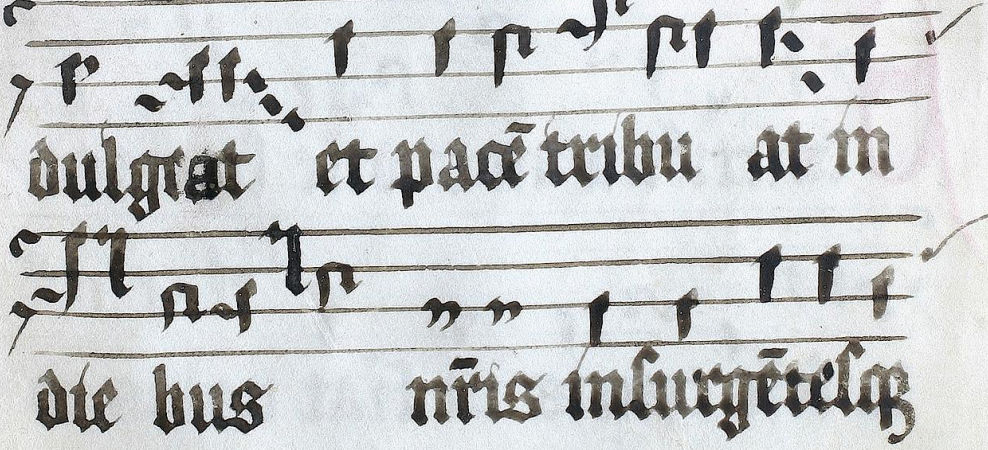 dulgeat et pacē tribu at in
die bus nr̄is insurgētesqꝫ